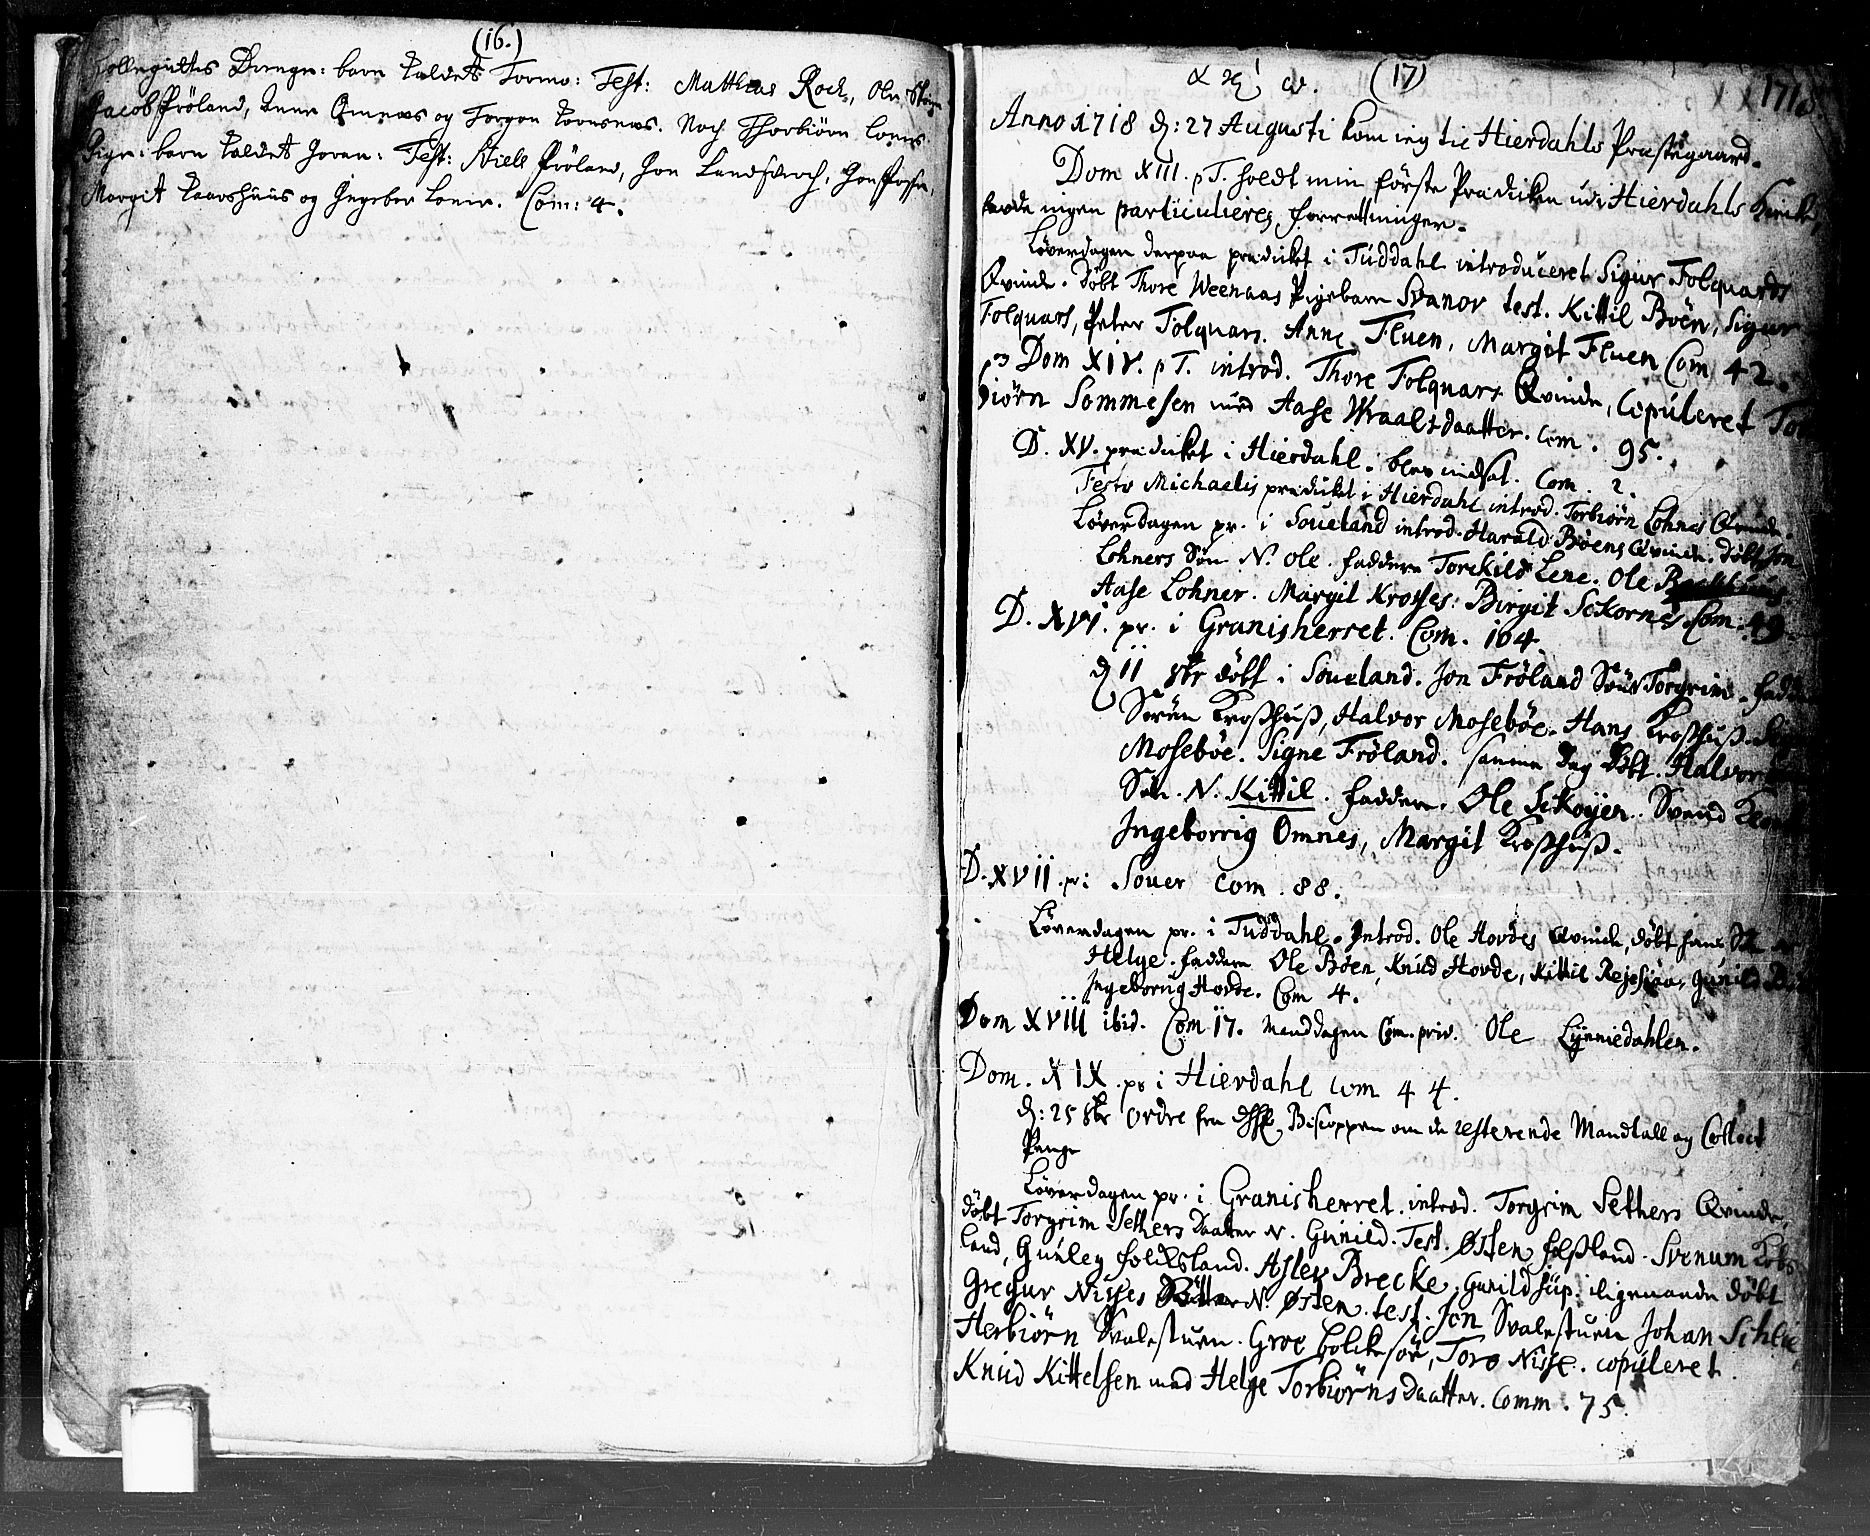 (16.)
Drenge: barn kaldet Tormo: Test: Matthias Roch, Ole
Jacob Fröland, Omnes og Torgon. Noch Thorbiörn Loners
Pige: barn kaldet Joran: Test: Niels Fröland, Jon Landsverch,
Margit og Ingeber Loner. Com: 4.
α κ! ω. (17) 1718.
Anno 1718 d: 27 Augusti kom ieg til Hierdahls Præstegaard.
Dom XIII. p T. holdt min förste Prædicken udi Hierdahls Kirke,
hafde ingen particulieres forretninger.
Løverdagen derpaa prædicket i Tuddahl introduceret Sigur Folquards
Qvinde. Döbt Thore Weenaas Pigebarn Svanov test. Kittil Böen, Sigur
Folquars, Peter Folquars. Anne Fluen, Margit Fluen Com 42.
Dom XIV. p T. introd. Thore Folquars Qvinde, Copuleret Tor
biörn Sommesen med Aase Wraalsdaatter. Com. 95.
D. XV. prædicket i Hierdahl. blev indsat. Com. 2.
Festo Michaelis prædicket i Hierdahl introd. Torbiörn Lohnes Qvinde.
Løverdagen pr. i Soueland introd. Harald Böens Qvinde. döbt Jon
Lohners Sön N. Ole. faddere Torckild Lene. Ole
Aase Lohner. Margit Krosses: Birgit Sckornes. Com. 49.
D. XVI. pr. i Granisherret. Com. 104.
d 11 8br döbt i Soueland. Jon Fröland Sön Torgrim. fadder
Sören Kroßhuß, Halvor Moseböe. Hans Kroßhuß.
Moseböe. Signe Fröland. samme Dag döbt. Halvor
Sön. N. Kittil. faddere. Ole Sckoyen. Svend
Ingeborrig Omnes, Margit Kroßhuß.
D. XVII. pr i Souer Com. 88.
Løverdagen pr. i Tuddahl. Introd. Ole Hovdes Qvinde, döbt hans Sön N
Helge. faddere Ole Böen, Knud Hovde, Kittil, Gunild
Ingeborug Hovde. Com 4.
Dom XVIII ibid. Com 17. Manddagen Com. priv. Ole Lynniedahlen.
Dom. XIX. pr i Hierdahl Com 44.
d: 25 8br Ordre fra Biscoppen om de resterende Mandtall og Collect
Penge
Løverdagen pr. i Granisherret. introd. Torgrim Sethers Qvinde,
döbt Torgrim Sethers Daatter N. Gunild. Test. Østen. Svenum
land, Gunley. Aslev Brecke, Gunild. iligemaade döbt
Gregur Nisses N. Østen. test. Jon Svalestuen Johan
Herbiörn Svalestuen. Groe, Toro Nisse. copuleret
Knud Kittelsen med Helge Torbiörnsdaatter. Comm. 75.